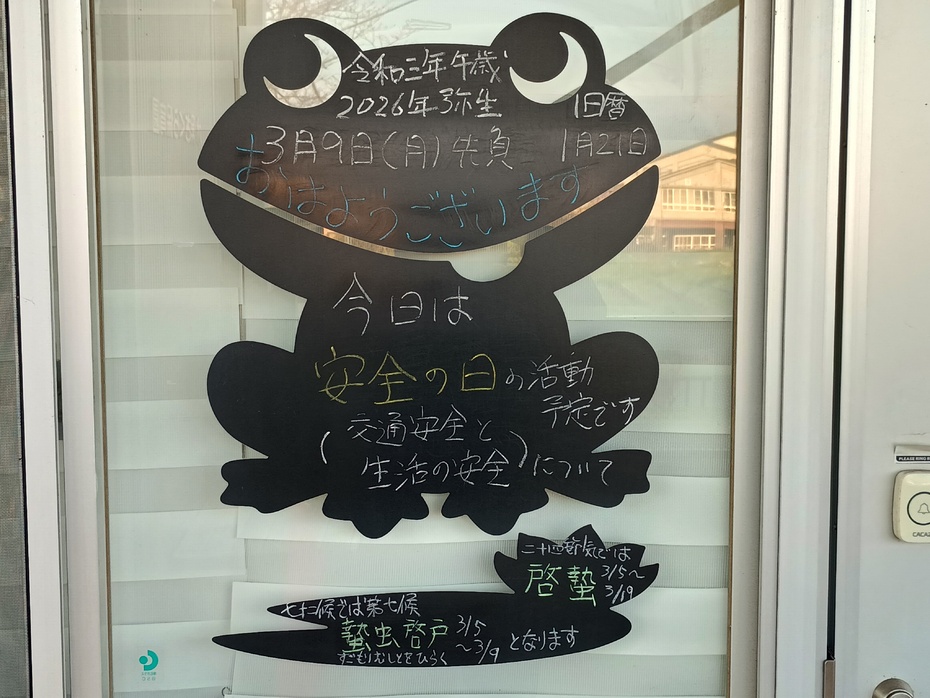 令和三年午歳
2026年弥生
旧暦
3月9日(月)先負
1月21日
おはようございます
今日は
安全の日の活動
予定です
(交通安全と
生活の安全)について
二十四節気では
啓蟄 3/5〜
3/19
七十二候では第七候
蟄虫啓戸 3/5
〜3/9 となります
すごもりむしとをひらく